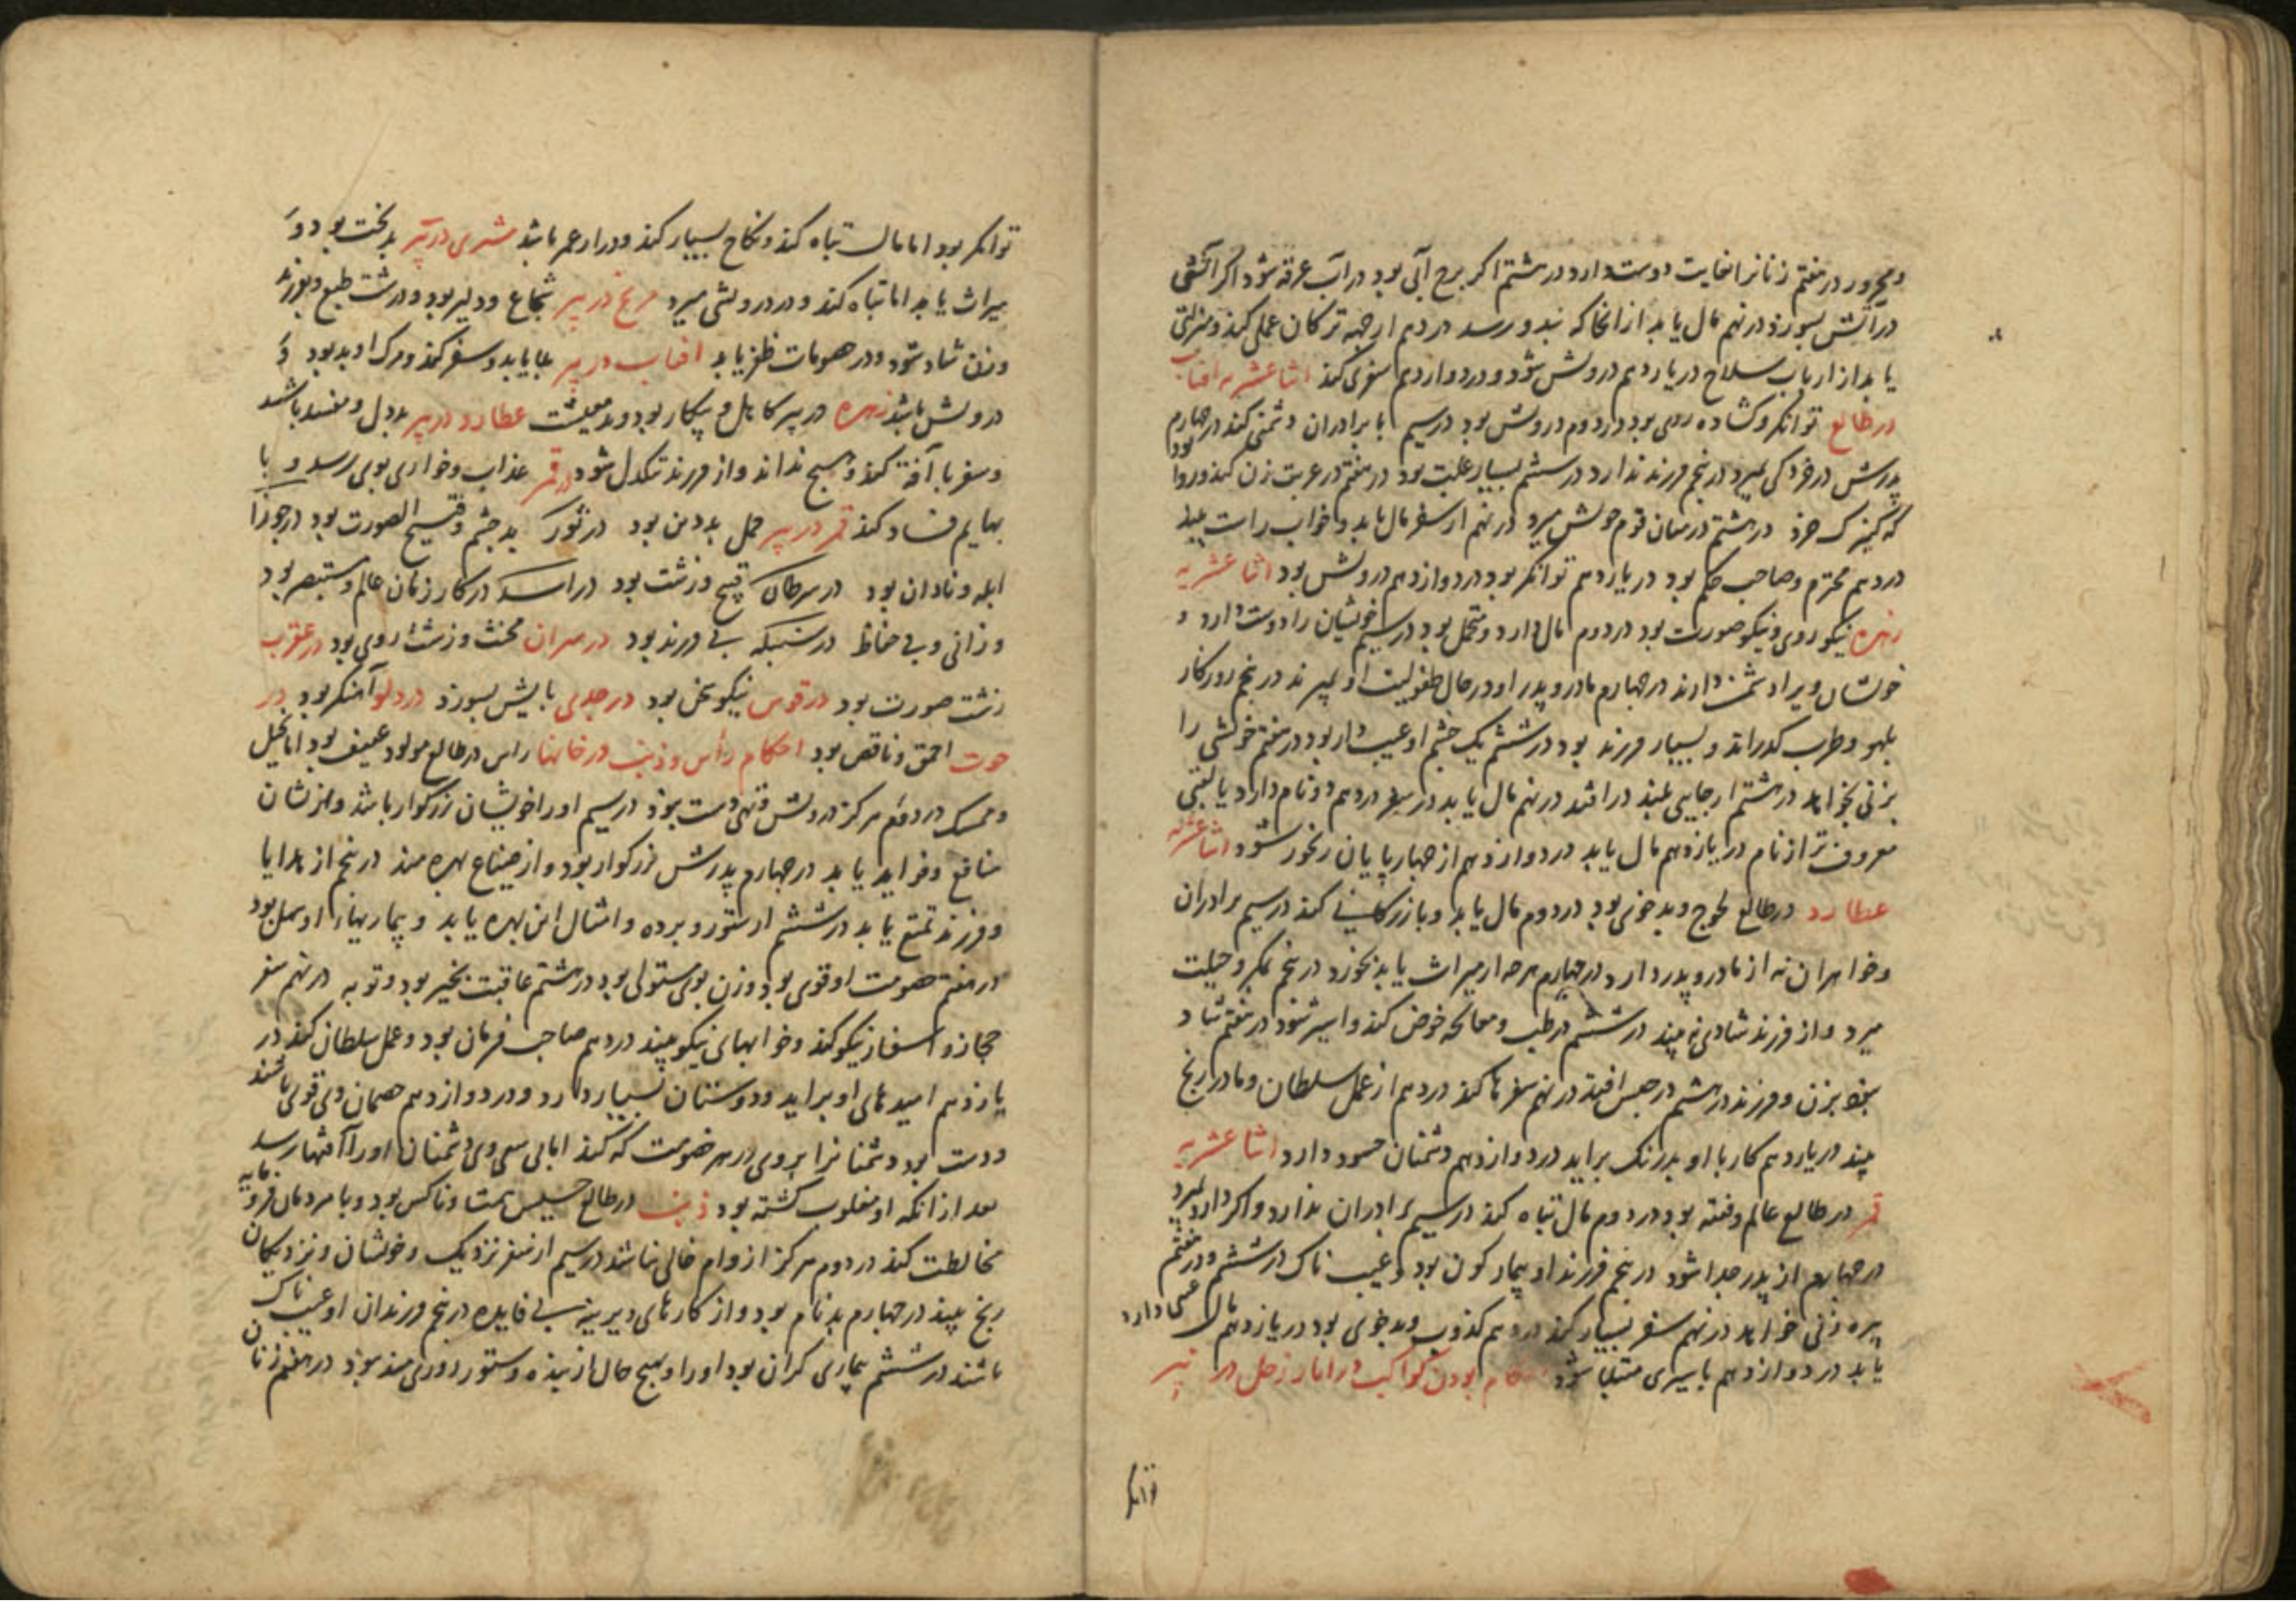 ومحرور در هفتم زنانرا بغایت دوست دارد در هشتم اکر برج آبی بود در آب غرقه شود اکر آتشی
در آتش بسوزد در نهم مال یابد از انجا که نبدورسد در دهم از جهة ترکان عمل کند و منزلتی
یابد از ارباب سلاح در یازدهم درویش شود و در دوازدهم سفری کند اثنا عشریه افتاب
در طالع توانکر و کشاده روی بود در دوم درویش بود در سیم با برادران دشمنی کند در چهارم
پدرش در خردکی بمیرد در پنجم فرزند ندارد در ششم بسیار علت بود در هفتم در غربت زن کند و روا بود
که کنیزک خرد در هشتم در میان قوم خویش میرد در نهم از سفر مال یابد و خواب راست بیند
در دهم محترم و صاحب حکم بود در یازدهم توانکر بود در دوازدهم درویش بود اثنا عشریه
زهره نیکو روی و نیکو صورت بود در دوم مال دارد و متحمل بود در سیم خویشان را دوست دارد و
خویشان ویرا دشمن دارند در چهارم مادر و پدر او در حال طفولیت او بمیرند در پنجم روزکار
بلهو و طرب کذراند و بسیار فرزند بود در ششم یک چشم او عیب دار بود در هفتم خویشی را
بزنی بخواهد در هشتم از جایی بلند در افتد در نهم مال یابد در سفر در دهم دو نام دارد یا لقبی
معروف تر از نام در یازدهم مال یابد در دوازدهم از چهارپایان رنجور شود اثنا عشریه
عطارد در طالع لجوج و بدخوی بود در دوم مال یابد و بازرکانی کند در سیم برادران
وخواهران نه از مادر و پدر دارد در چهارم هرچه از میراث یابد بخورد در پنجم بمکر و حیلت
میرد و از فرزند شادی نه بیند در ششم در طب و معالجه خوض کند و اسیر شود در هفتم شاد
بزن و فرزند در هشتم در حبس افتد در نهم سفرها کند در دهم از عمل سلطان و مادر رنج
بیند در یازدهم کارها او بدرنک براید در دوازدهم دشمنان حسود دارد اثنا عشریه
قمر در طالع عالم و فقیه بود در دوم مال تباه کند در سیم برادران ندارد و اکر دارد بمیرد
در چهارم از پدر جدا شود در پنجم فرزند او بیمار کون بود و عیب ناک در ششم و در هفتم
پیره زنی خواهد در نهم سفر بسیار کند در دهم کذوب و بدخوی بود در یازدهم مال
یابد در دوازدهم باسیری مبتلا شود احکام بودن کواکب در ابار زحل در بئر
توانکر
توانکر بود اما مال تباه کند و نکاح بسیار کند و دراز عمر باشد مشتری در بئر بدبخت بود و
میراث یابد اما تباه کند و در درویشی میرد مریخ در بئر شجاع و دلیر بود و درشت طبع و بفرزند
و زن شاد شود و در خصومات ظفر یابد افتاب در بئر بلا یابد و سفر کند و مرک او بد بود و
درویش باشد زهره در بئر کاهل و بیکار بود و بد معیشت عطارد در بئر بددل و مفسد باشد
و سفر با آفت کند و هیچ نداند و از فرزند تنکدل شود در قمر عذاب و خواری بوی رسد و با
بهایم فساد کند قمر در بئر حمل بددین بود در ثور بدچشم و قبیح الصورت بود در جوزا
ابله و نادان بود در سرطان قبیح و زشت بود در اسد در کار زنان عالم و مستبصر بود
و زانی و بی حفاظ در سنبله بی فرزند بود در میزان مخنث و زشت روی بود در عقرب
زشت صورت بود در قوس نیکو سخن بود در جدی بآتش بسوزد در دلو آهنکر بود در
حوت احمق و ناقص بود احکام رأس و ذنب در خانها راس در طالع مولود عفیف بود اما بخیل
وممسک در دوم هرکز درویش و تهی دست نبود در سیم او را خویشان بزرکوار باشد و از یشان
منافع و فواید یابد در چهارم پدرش بزرکوار بود و از ضیاع بهره مند در پنجم از هدایا
و فرزند تمتع یابد در ششم از ستور و برده و امثال این بهره یابد و بیماریهاء او سهل بود
در هفتم خصومت او قوی بود و زن بوی مستولی بود در هشتم عاقبت بخیر بود و توبه در نهم سفر
حجاز و اسفار نیکو کند و خوابهای نیکو بیند در دهم صاحب فرمان بود و عمل سلطان کند در
یازدهم امیدهای او براید و دوستان بسیار دارد و در دوازدهم خصمان وی قوی باشند
و دست بود دشمنانرا بروی در هر خصومت که کند اما بی سعی وی دشمنان او را آفتها رسد
بعد از انکه او مغلوب کشته بود ذنب در طالع خسیس همت و ناکس بود و با مردمان فرومایه
مخالطت کند در دوم هرکز از وام خالی نباشد در سیم از سفر نزدیک و خویشان و نزدیکان
رنج بیند در چهارم بدنام بود و از کارهای دیرینه بی فایده در پنجم فرزندان او عیب ناک
باشند در ششم بیماری کران بود او را و بهیچ حال از بنده و ستور روزی مند نبود در هفتم زنان